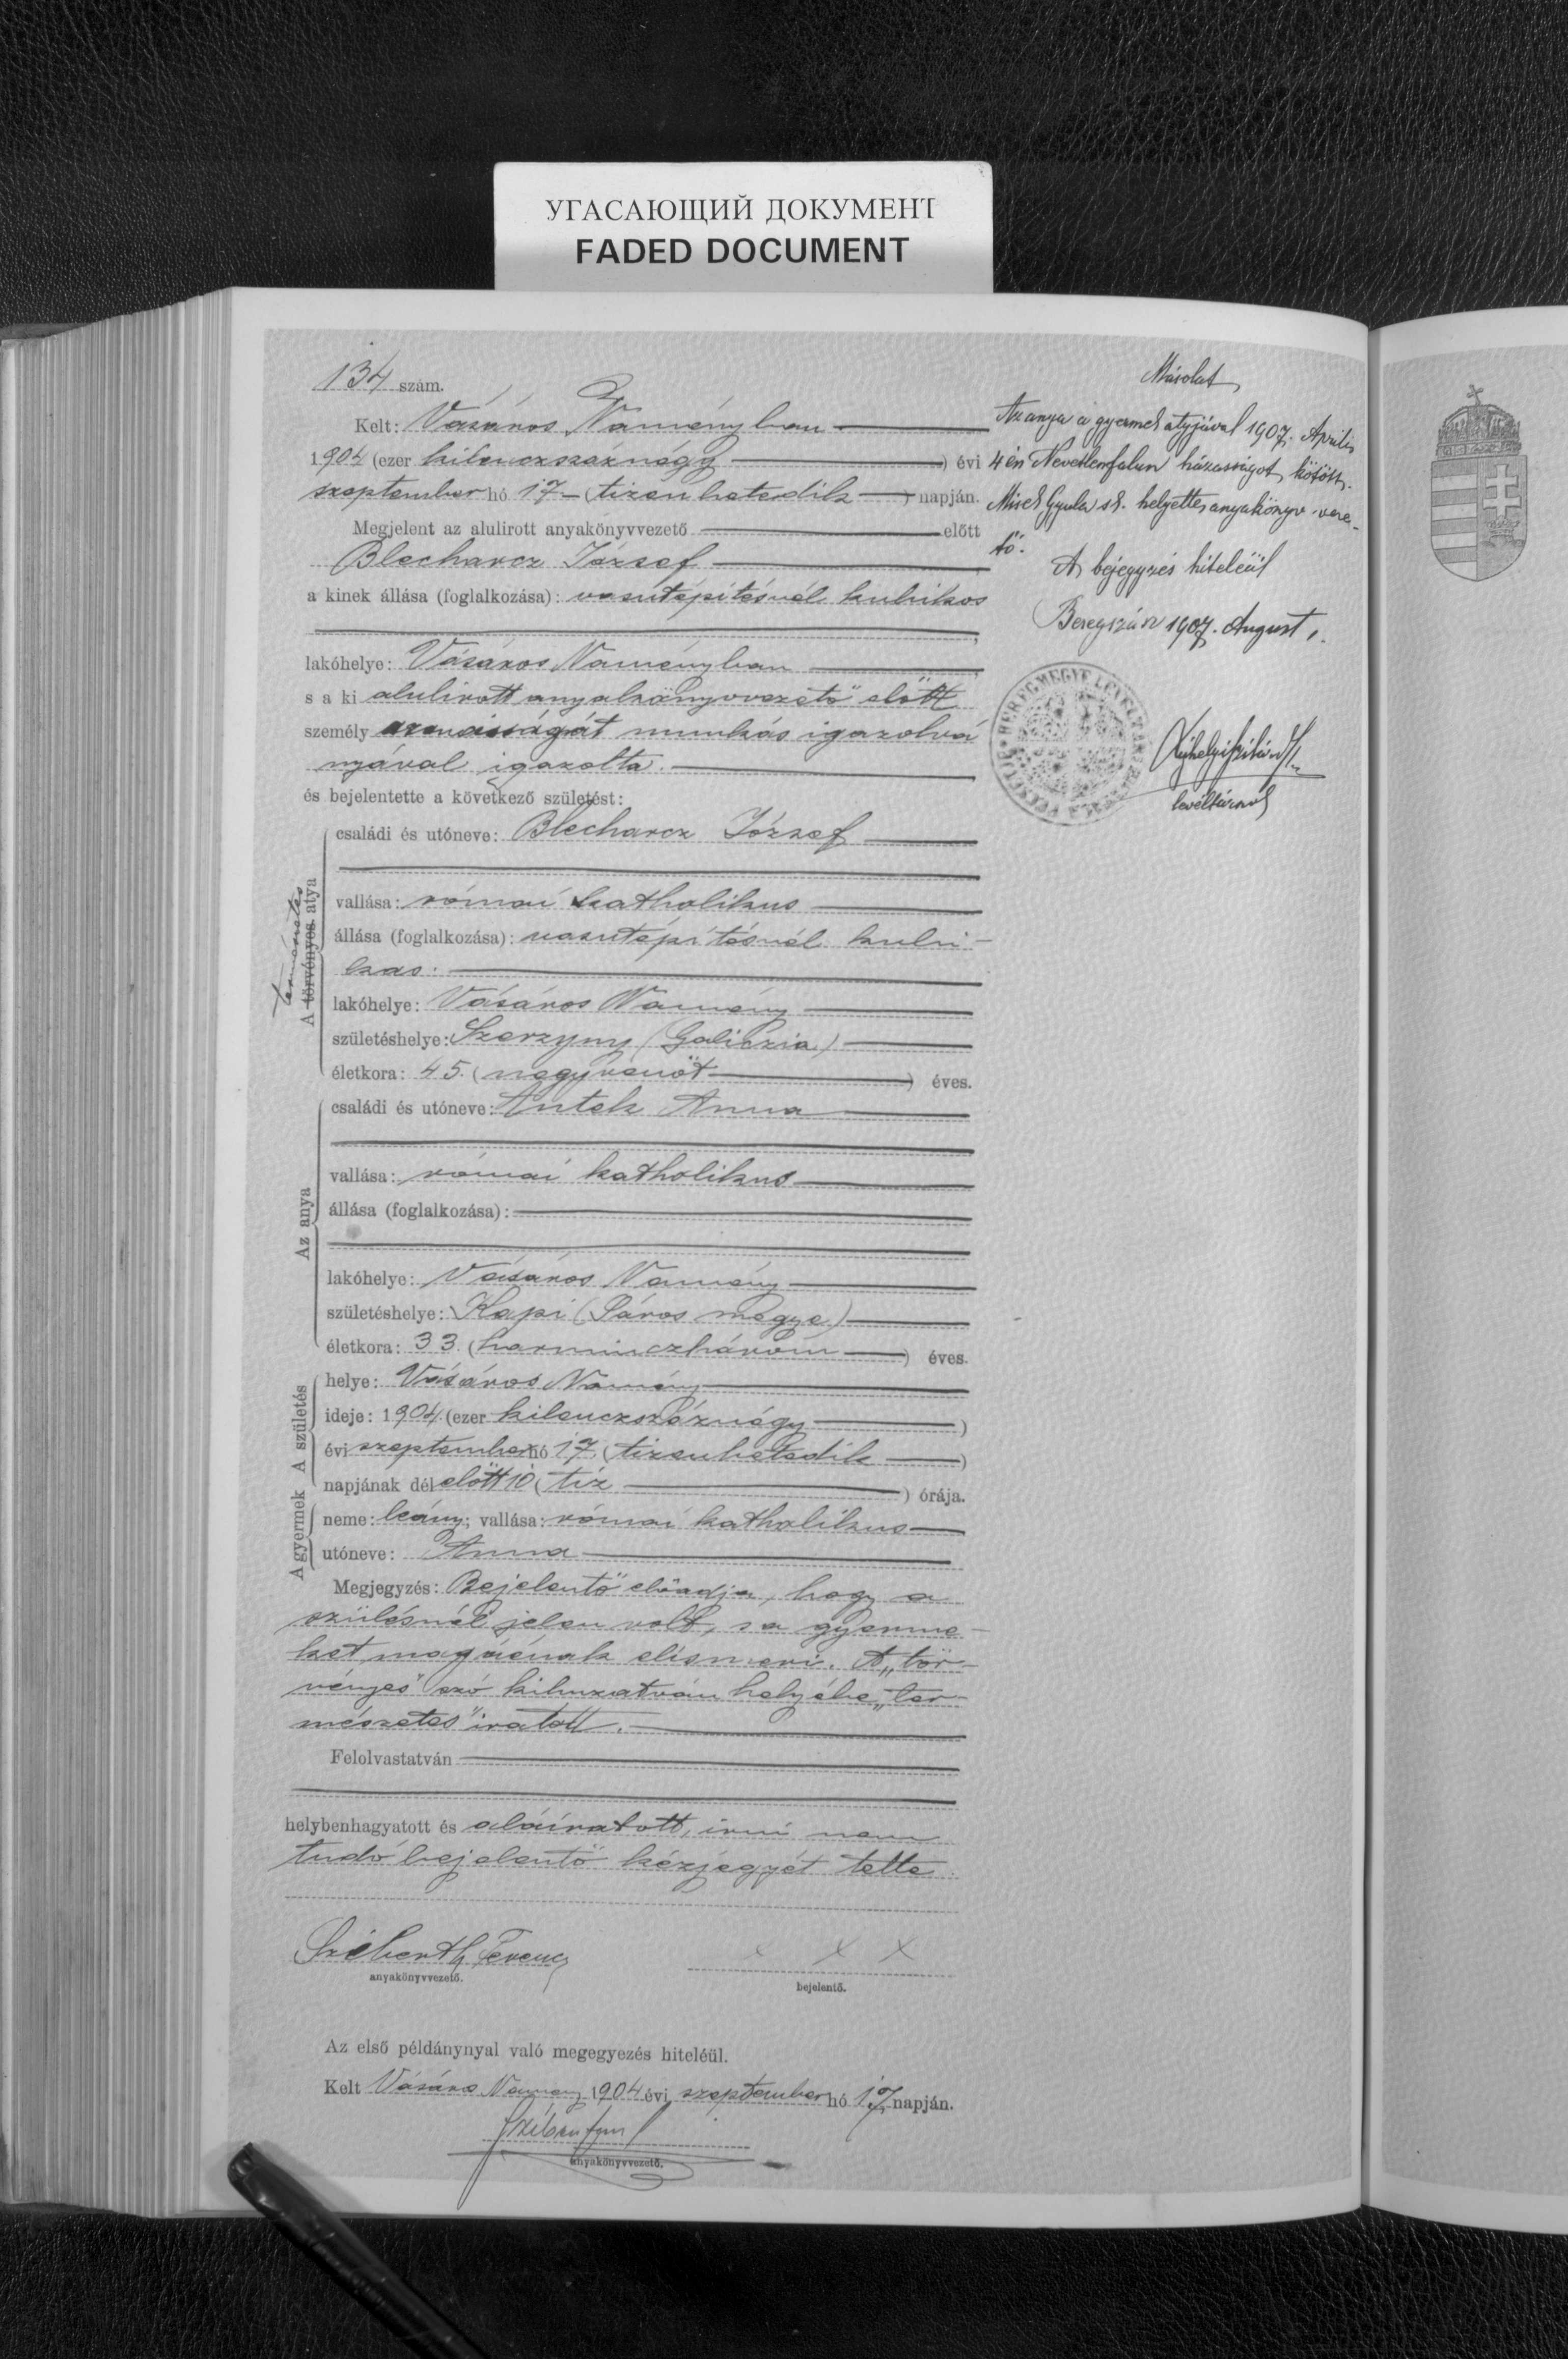 УГАСАЮЩИЙ ДОКУМЕНТ
FADED DOCUMENT
134 szám.
Kelt: Vásáros Naményban
1904 (ezer kilenczszáznégy) évi
szeptember hó 17 (tizenhetedik) napján.
Megjelent az alulirott anyakönyvvezető előtt
Blecharcz József
a kinek állása (foglalkozása): vasutépitésnél kubikos
lakóhelye: Vásáros Naményban
s a ki alulirott anyakönyvvezető előtt
személy azonosságát munkás igazolvá
nyával igazolta.
és bejelentette a következő születést:
A törvényes atya
természetes
családi és utóneve: Blecharcz József
vallása: római katholikus
állása (foglalkozása): vasutépitésnél kubi-
kos.
lakóhelye: Vásáros Namény
születéshelye: Szerzyny (Galiczia)
életkora: 45. (negyvenöt) éves.
Az anya
családi és utóneve: Antek Anna
vallása: római katholikus
állása (foglalkozása):
lakóhelye: Vásáros Namény
születéshelye: Kapi (Sáros megye)
életkora: 33. (harminczhárom) éves.
A születés
helye: Vásáros Namény
ideje: 1904. (ezer kilenczszáznégy)
évi szeptember hó 17 (tizenhetedik)
napjának délelőtt 10 (tiz) órája.
A gyermek
neme: leány; vallása: római katholikus
utóneve: Anna
Megjegyzés: Bejelentő előadja, hogy a
szülésnél jelen volt, s a gyerme-
ket magáénak elismeri. A „tör-
vényes" szó kihuzatván helyébe „ter-
mészetes" iratott.
Felolvastatván
helybenhagyatott és aláiratott, irni nem
tudó bejelentő kézjegyét tette
Ferencz
x x x
anyakönyvvezető.
bejelentő.
Az első példánynyal való megegyezés hiteléül.
Kelt Vásáros Namény 1904 évi szeptember hó 17 napján.
anyakönyvvezető.
Másolat
Az anya a gyermek atyjával 1907. Április
4 én Nevetlenfalun házasságot kötött.
Misek Gyula sk. helyettes anyakönyv veze-
tő.
A bejegyzés hiteléül
Beregszász 1907. August 1.
levéltárnok